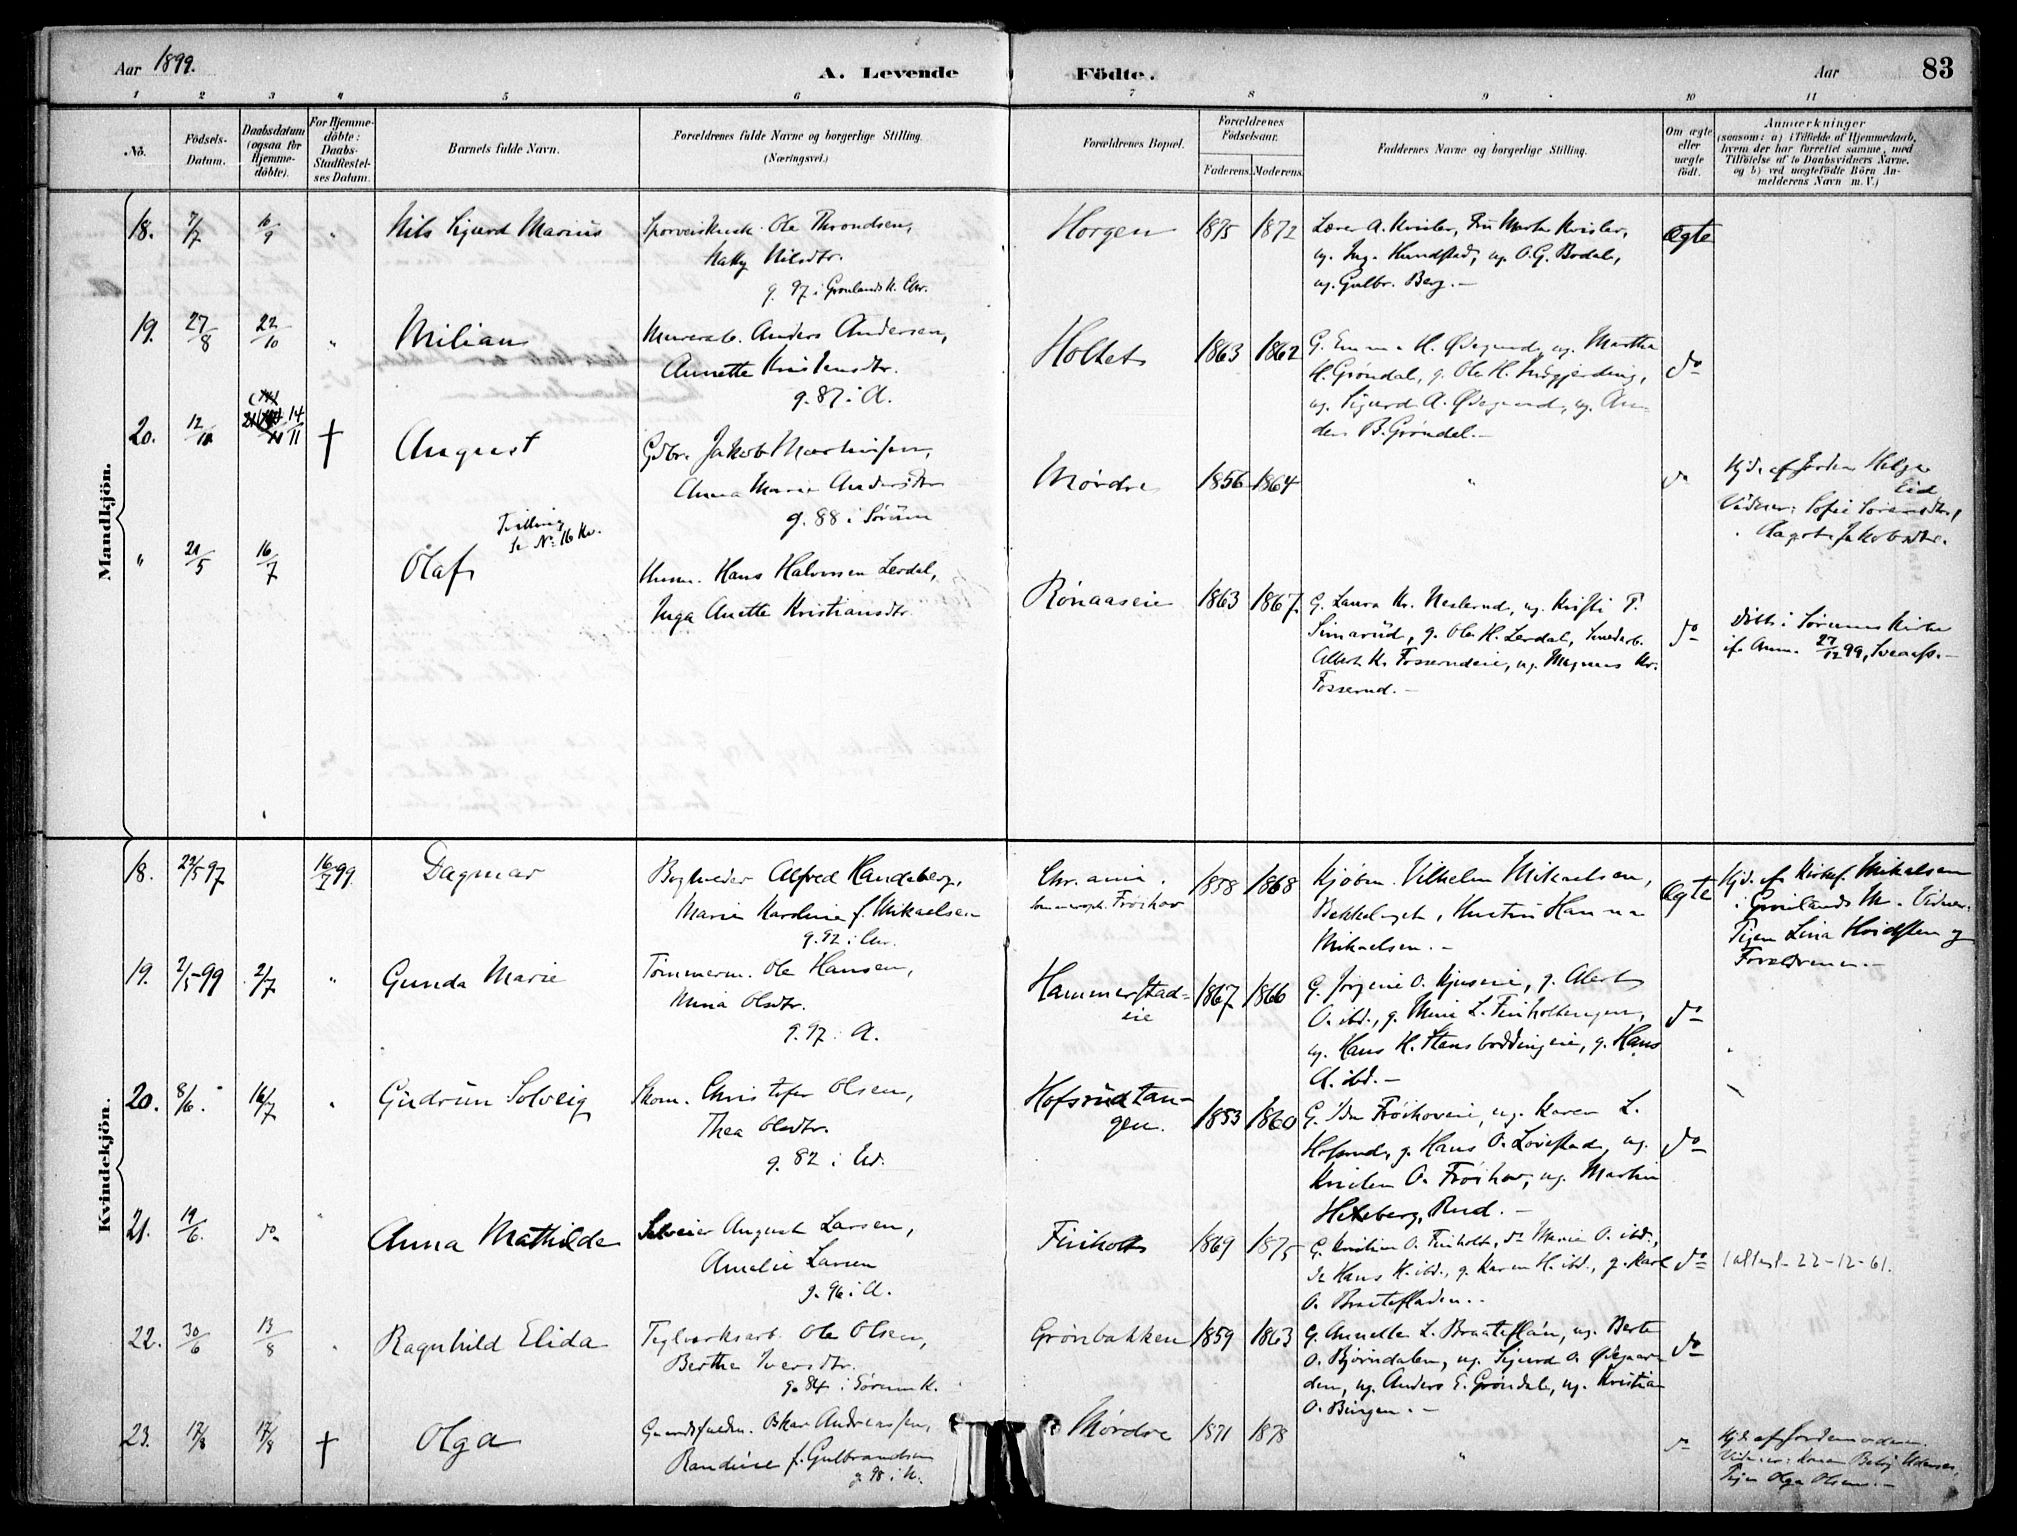 Aar 1899.
A. Levende Födte.
Aar
83
1 2 3 4 5 6 7 8 9 10 11
No.
Födsels-Datum.
Daabsdatum (ogsaa for Hjemmedöbte).
For Hjemmedöbte: Daabs-Stadfæstelses Datum.
Barnets fulde Navn.
Forældrenes fulde Navne og borgerlige Stilling. (Næringsvei.)
Forældrenes Bopæl.
Forældrenes Födselsaar.
Faderens. Moderens.
Faddernes Navne og borgerlige Stilling.
Om ægte eller uægte födt.
Anmærkninger
(saasom: a) i Tilfælde af Hjemmedaab, hvem der har forrettet samme, med Tilföielse af to Daabsvidners Navne, og b) ved uægtefödte Börn Anmelderens Navn m. V.)
Mandkjön.
18. 7/7 10/9 " Nils Sigurd Marius
Ole Throndsen,
Nilsdtr.
g. 97 i Grønlands K. Chr.
Horgen 1875 1872
Lærer A. Kvisler, Fru Marte Kvisler,
ug. Hundstad, ug. O. G. Bodal,
ug. Gulbr. Berg. -
Ægte
19. 27/8 22/10 " Milian
Murerarb. Anders Andersen,
Annette Kristensdtr.
g. 87 i A.
Holtet 1863 1862
G. Emma H. Ødegaard, ug. Martha
H. Grøndal, g. Ole H.
ug. Sigurd A. Ødegaard, ug. An-
ders B. Grøndal. -
do
20. 12/10 14/11 † August
Gdbr. Jakob Martinsen,
Anna Marie Andersdtr
g. 88 i Sørum
Mørdre 1856 1864 " do
Hjd. af Jordm. Helga
Eid
Vidner: Sofie Sørensdtr,
Aagot Jakobsdtr.
" 21/5 16/7 Olaf
Tvilling
Se No 16 Kv.
Husm. Hans Halvorsen Lerdal,
Inga Anette Kristiansdtr.
Rønaaseie 1863 1867.
G. Laura Kr. Neslerud, ug. Kristi P.
Simarud, g. Ole H. Lerdal, Snedkerb.
Albert K. Fosserudeie, ug. Magnus Kr.
Fosserud. -
do
Døbt i Sørums Kirke
if. Anm. 27/12 99,
Kvindekjön.
18. 22/5 97 16/7 99. Dagmar
Alfred Handeberg,
Marie Karoline f. Mikaelsen
g. 92 i Chr.
Chr.ania.
Frøihov
1858 1868
Kjøbm. Vilhelm Mikaelsen,
Bekkelaget, Hustru Hanna
Mikaelsen. -
Ægte
Hjd. af Mikaelsen
i Grønlands M. Vidner:
Pigen Lina Hvidsten og
Forældrene. -
19. 2/5 99 2/7 " Gunda Marie
Tømmerm. Ole Hansen,
Mina Olsdtr.
g. 97. A.
Hammerstad-
eie
1867 1866
G. Jørgine O. Kjuseie, g. Albert
O. ibd., g. Mina L. Finholtengen,
ug. Hans H. Hansboddingeie, g. Hans
A. ibd. -
do
20. 8/6. 16/7 " Gudrun Solveig
Skom. Christofer Olsen,
Thea Olsdtr.
g. 82 i Ed.
Hofsrudtan-
gen.
1853 1860
G. Ida Frøihoveie, ug. Karen L.
Hofsrud, g. Hans O. Løvestad, ug.
Kristen O. Frøihov, ug. Martin
Hexeberg, Rud. -
do
21. 19/6. do " Anna Mathilde
Selveier August Larsen,
Amalie Larsen
g. 96 i A.
Finholt 1869 1875
G. Kristine O. Finholt, do Marie O. ibd.,
do Hans H. ibd., g. Karen H. ibd., g. Karl
O. Braatefladen. -
do
1 attest - 22-12-61.
22. 30/6 13/8 " Ragnhild Elida
Teglverksarb. Ole Olsen,
Berthe Iversdtr.
g. 84 i Sørum K.
Grønbakken 1859 1863
G. Annette L. Braateflan, ug. Berte
O. Bjørndalen, ug. Sigurd O. Ødegaar-
den, ug. Anders E. Grøndal, ug. Kristian
O. Bingen. -
do
23. 17/8 17/8 † Olga
Oskar Andreassen,
Randine f. Gulbrandsen
g. 98 i N.
Mørdre 1871 1878 " do
Hjd. af Jordemoderen.
Vidner: Karen
Pigen Olga Olsen. -